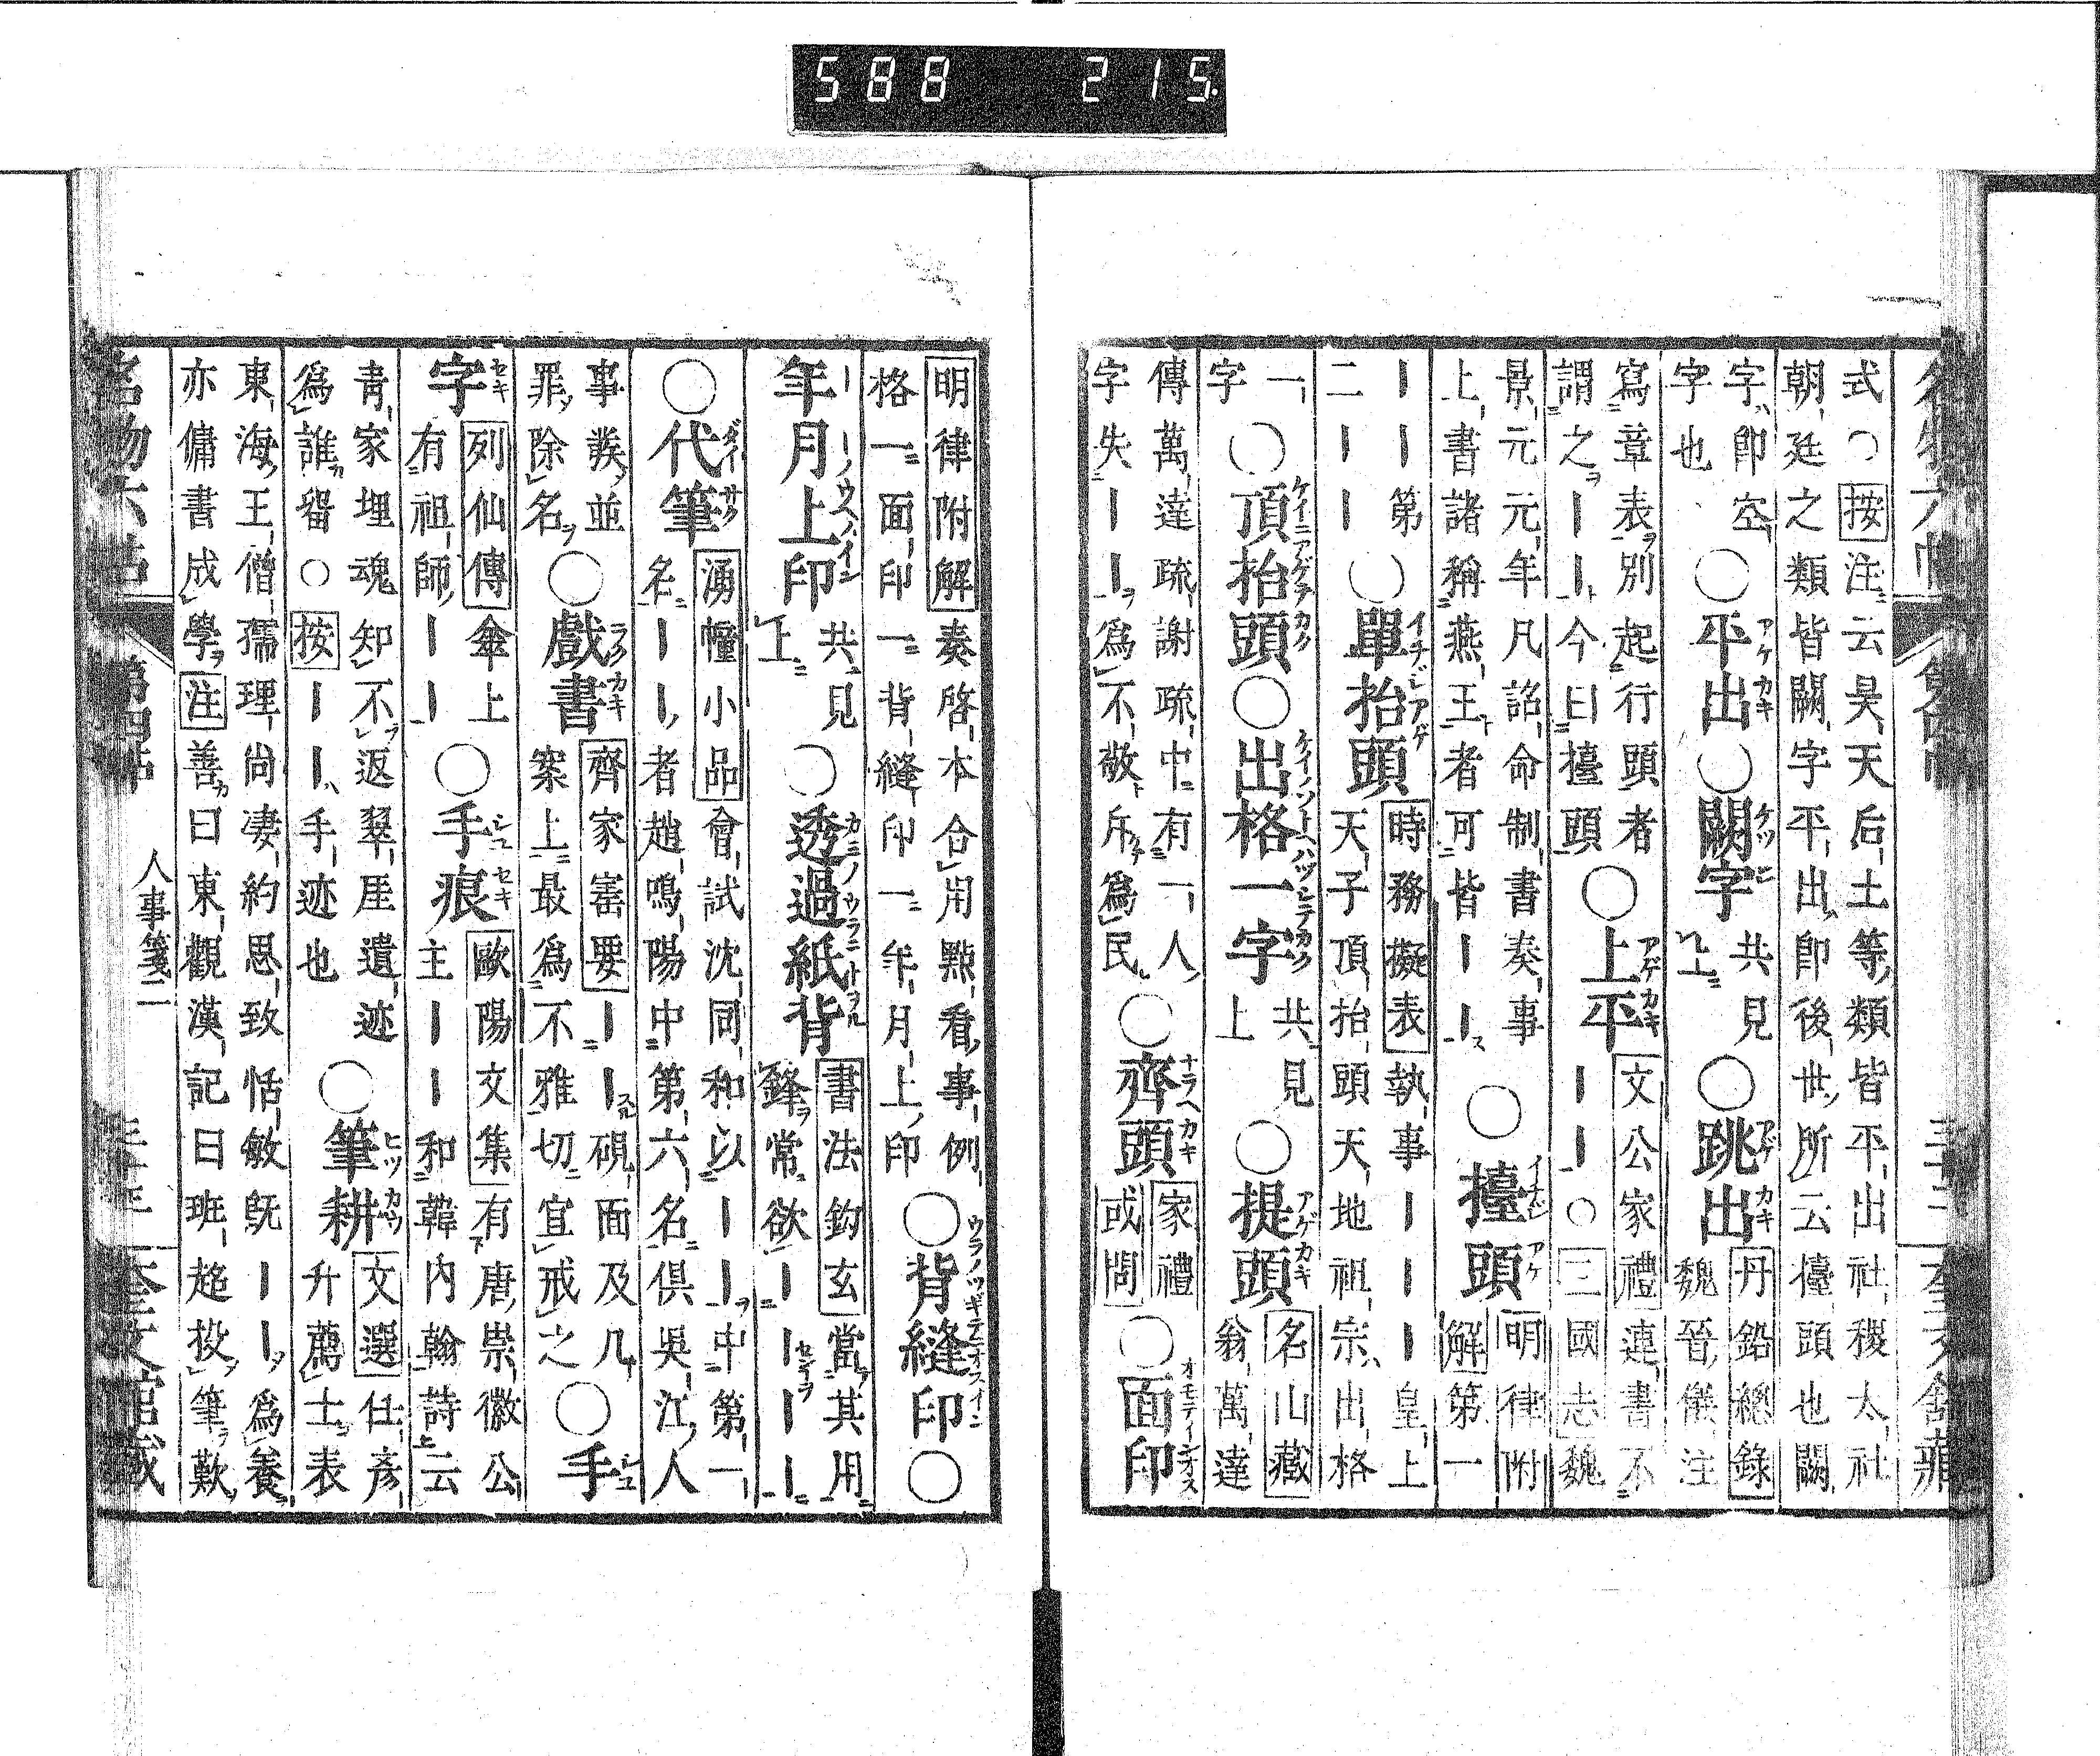 588 215.
式○按注云昊天后土等類皆平出社稷太社
朝廷之類皆闕字平出即後世所云擡頭也闕
字即空
字也
○平出○闕字
共見
上
○跳出
丹鉛總錄
魏晉儀注
寫章表別起行頭者
謂之｜｜今曰擡頭
○上平
文公家禮連書不
｜｜○三國志魏
景元元年凡詔命制書奏事
上書諸稱燕王者可皆｜｜
○擡頭
明律附
解第一
｜｜第
二｜｜
○單抬頭
時務擬表執事｜｜｜皇上
天子頂抬頭天地祖宗出格
一
字
○頂抬頭○出格一字
共見
上
○提頭
名山藏
翁萬達
傳萬達疏謝疏中有一人
字失｜｜爲不敬斥爲民
○齊頭
家禮
或問
○面印
明律附解奏啓本合用點看事例
格一面印一背縫印一年月上印
○背縫印○
年月上印
共見
上
○透過紙背
書法鈎玄當其用
鋒常欲｜｜｜｜
○代筆
湧幢小品會試沈同和以｜｜中第一
名｜｜者趙鳴陽中第六名俱吳江人
事發並
罪除名
○戲書
齊家寶要｜｜硯面及几
案上最爲不雅切宜戒之
○手
字
列仙傳傘上
有祖師｜｜
○手痕
歐陽文集有唐崇徽公
主｜｜和韓內翰詩云
青家埋魂知不返翠厓遺迹
爲誰留○按｜｜手迹也
○筆耕
文選任彥
升薦士表
東海王僧孺理尚凄約思致恬敏既｜｜爲養
亦傭書成學注善曰東觀漢記曰班超投筆歎
名物六帖
第四帖
人事箋二
奎文館藏